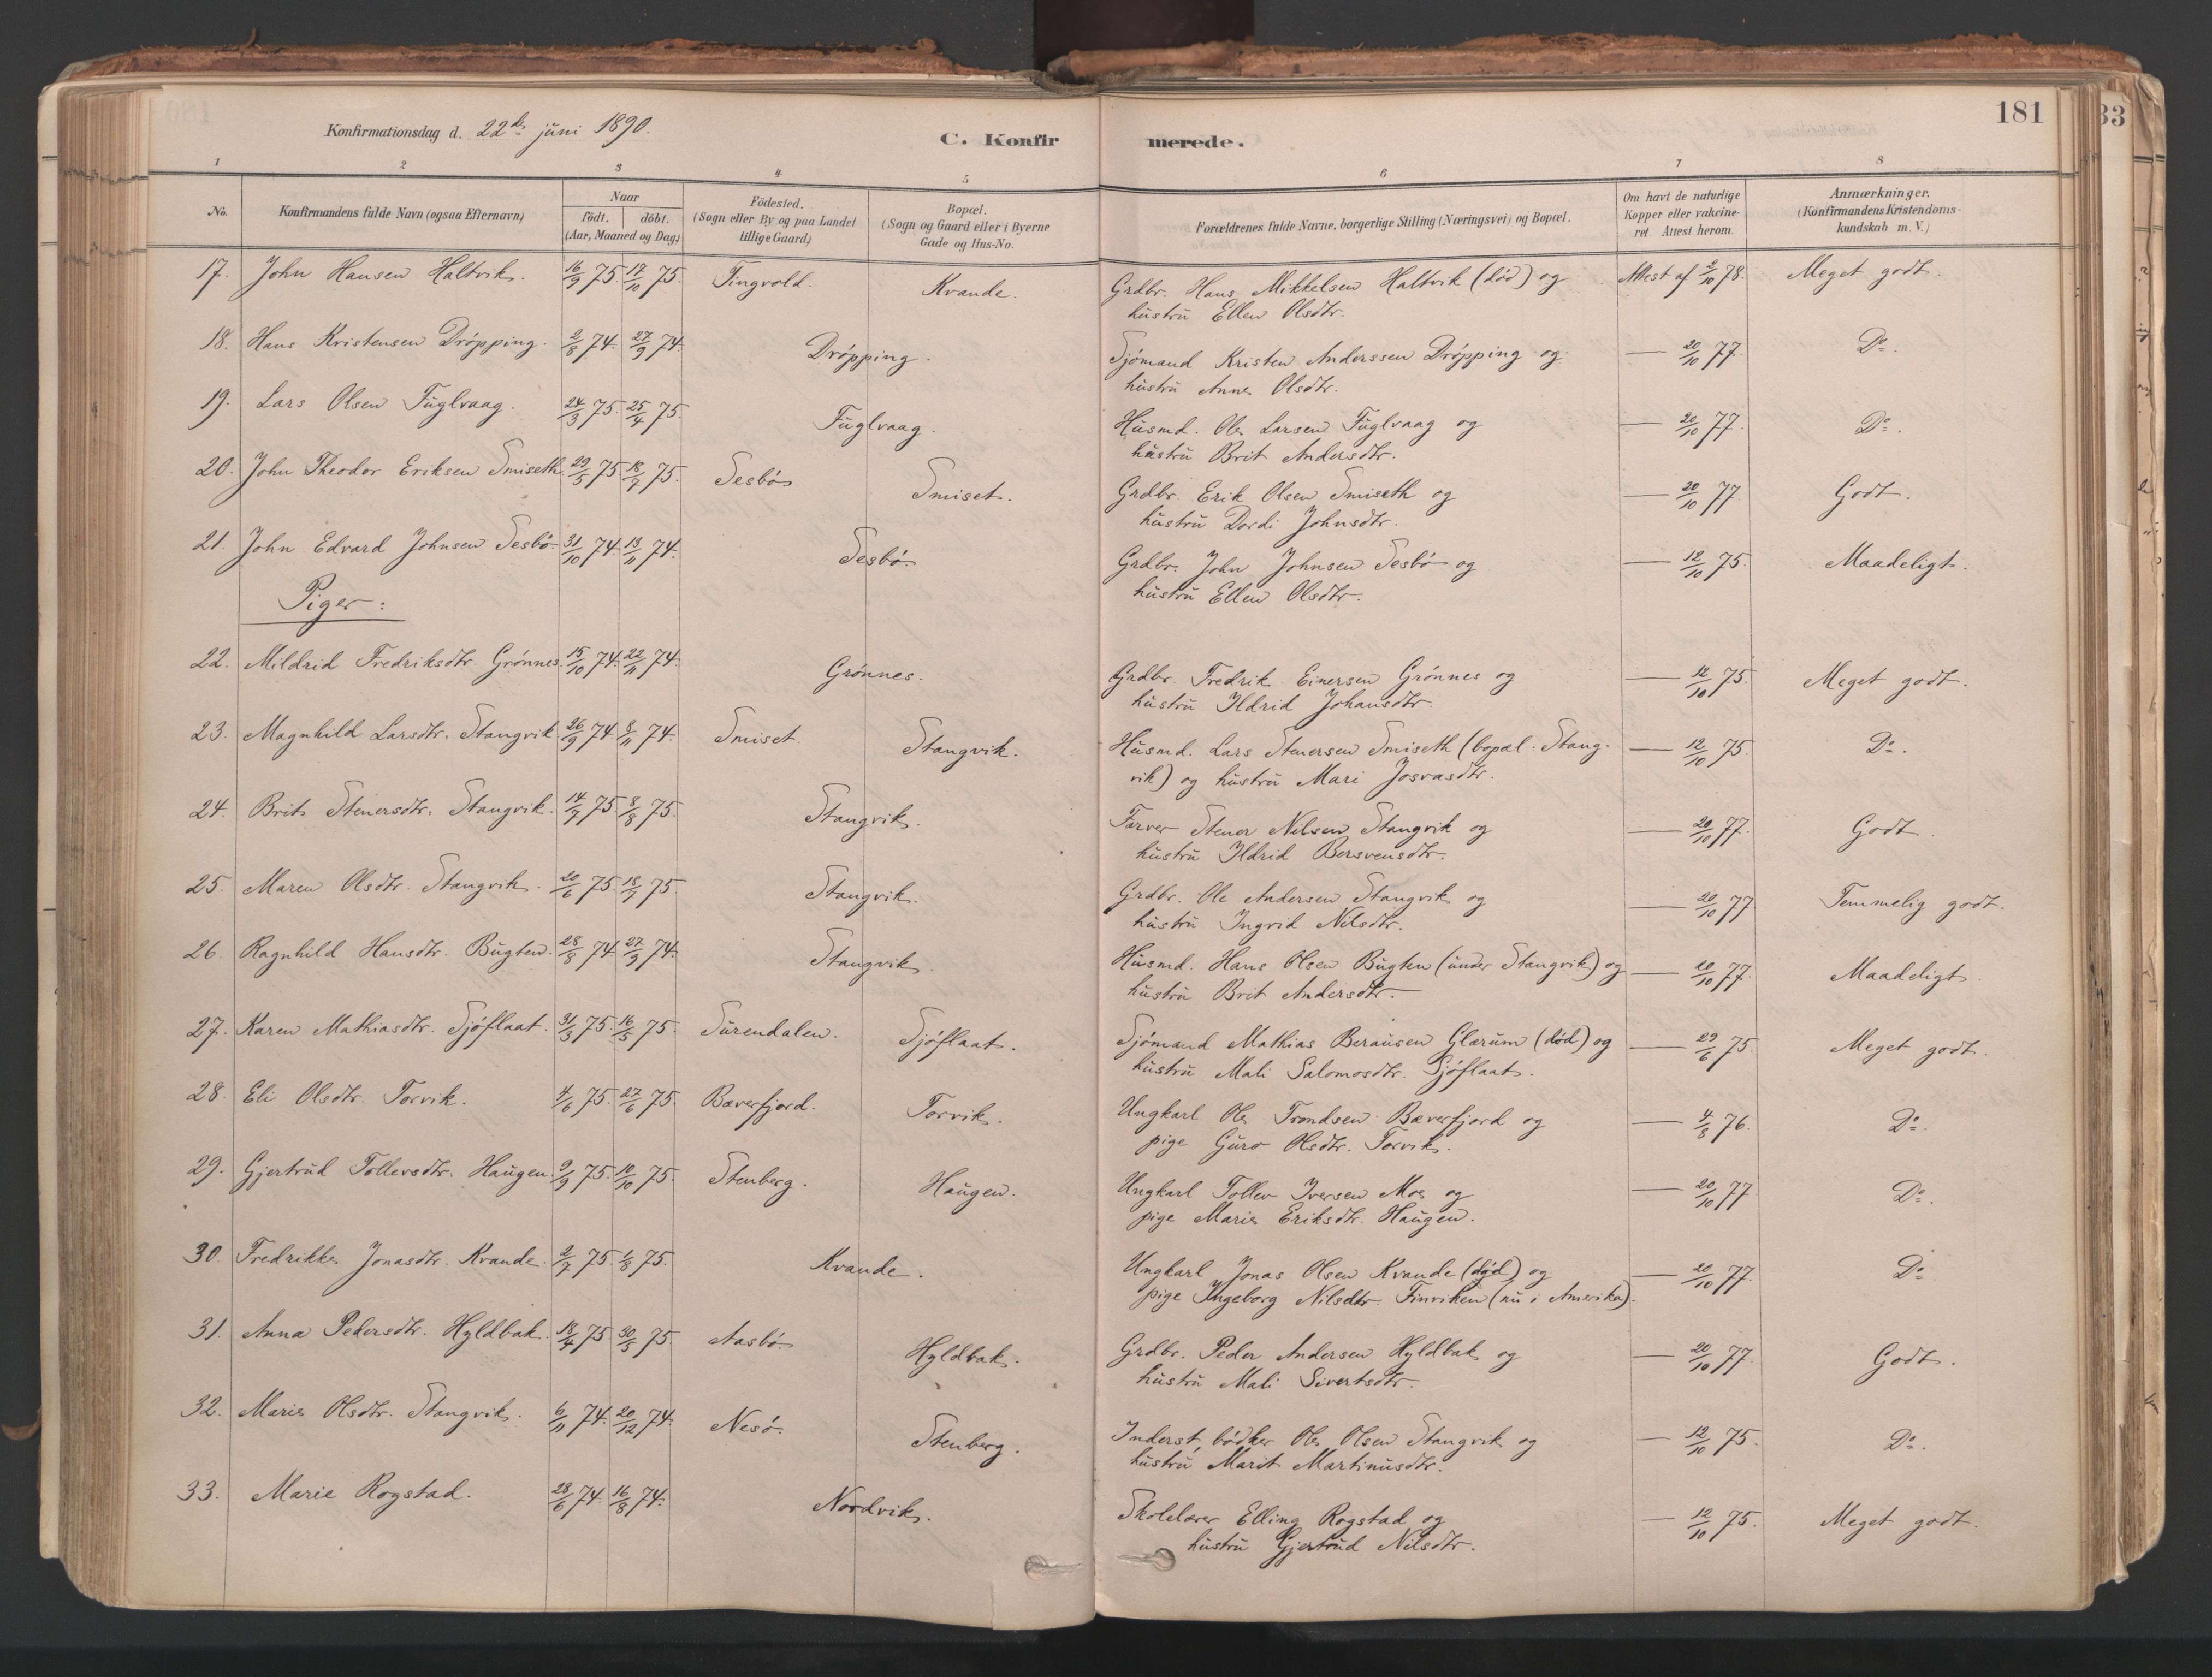 181
Konfirmationsdag d. 22de juni 1890.
C. Konfirmerede.
1 2 3 4 5 6 7 8
No. Konfirmandens fulde Navn (ogsaa Efternavn) Naar födt. döbt. (Aar, Maaned og Dag) Födested. (Sogn eller By og paa Landet tillige Gaard) Bopæl. (Sogn og Gaard eller i Byerne Gade og Hus-No. Forældrenes fulde Navne, borgerlige Stilling (Næringsvei) og Bopæl. Om havt de naturlige Kopper eller vakcineret. Attest herom. Anmærkninger. (Konfirmandens Kristendomskundskab m. V.)
17. John Hansen Haltvik. 16/9 75. 17/10 75. Tingvold. Kvande. Grdbr. Hans Mikkelsen Haltvik (död) og Attest af 2/10 78. Meget godt.
hustru Ellen Olsdtr.
18. Hans Kristensen Dröpping. 2/8 74. 27/9 74. Dröpping. Sjömand Kristen Anderssen Dröpping og — 20/10 77. Do.
hustru Anne Olsdtr.
19. Lars Olsen Fuglvaag. 24/3 75. 25/4 75. Fuglvaag. Husmd. Ole Larsen Fuglvaag og — 20/10 77. Do.
hustru Brit Andersdtr.
20. John Theodor Eriksen Smiseth 29/5 75. 18/7 75. Sesbö Smiset. Grdbr. Erik Olsen Smiseth og — 20/10 77. Godt.
hustru Dordi Johnsdtr.
21. John Edvard Johnsen Sesbö 31/10 74. 13/11 74. Sesbö. Grdbr. John Johnsen Sesbö og — 12/10 75. Maadeligt.
hustru Ellen Olsdtr.
Piger:
22. Mildrid Fredriksdtr. Grönnes. 15/10 74. 22/11 74. Grönnes. Grdbr. Fredrik Einersen Grönnes og — 12/10 75. Meget godt.
hustru Ildrid Johansdtr.
23. Magnhild Larsdtr. Stangvik 26/9 74. 8/11 74. Smiset. Stangvik. Husmd. Lars Stenersen Smiseth (bopæl: Stang- — 12/10 75. Do.
vik) og hustru Mari Josvasdtr.
24. Brit Stenersdtr. Stangvik. 14/7 75. 8/8 75. Stangvik. Farver Stener Nilsen Stangvik og — 20/10 77. Godt.
hustru Ildrid Bersvensdtr.
25. Maren Olsdtr. Stangvik. 20/6 75 18/7 75. Stangvik. Grdbr. Ole Andersen Stangvik og — 20/10 77. Temmelig godt.
hustru Ingrid Nilsdtr.
26. Ragnhild Hansdtr. Bugten. 28/8 74. 27/9 74. Stangvik. Husmd. Hans Olsen Bugten (under Stangvik) og — 20/10 77. Maadeligt.
hustru Brit Andersdtr.
27. Karen Mathiasdtr. Sjöflaat. 31/3 75. 16/5 75. Surendalen. Sjöflaat. Sjömand Mathias Berausen Glærum (död) og — 29/6 75. Meget godt.
hustru Mali Salomosdtr. Sjöflaat.
28. Eli Olsdtr. Torvik. 4/6 75. 27/6 75. Bæverfjord. Torvik. Ungkarl Ole Trondsen Bæverfjord og — 4/8 76. Do.
pige Guro Olsdtr. Torvik.
29. Gjertrud Tollevsdtr. Haugen. 9/9 75. 10/10 75. Stenberg. Haugen. Ungkarl Tollev Iversen Moe og — 20/10 77 Do.
pige Marie Eriksdtr. Haugen.
30. Fredrikke Jonasdtr. Kvande. 2/7 75. 1/8 75. Kvande. Ungkarl Jonas Olsen Kvande (död) og — 20/10 77. Do.
pige Ingeborg Nilsdtr. Finviken (nu i Amerika).
31. Anna Pedersdtr. Hyldbak. 18/4 75 30/5 75. Aasbö. Hyldbak. Grdbr. Peder Andersen Hyldbak og — 20/10 77. Godt.
hustru Mali Sivertsdtr.
32. Marie Olsdtr. Stangvik. 6/11 74. 20/12 74. Nesö. Stenberg. Inderst, bödker Ole Olsen Stangvik og — 12/10 75. Do.
hustru Marit Martinusdtr.
33. Marie Rogstad. 28/6 74. 16/8 74. Nordvik. Skolelærer Elling Rogstad og — 12/10 75. Meget godt.
hustru Gjertrud Nilsdtr.